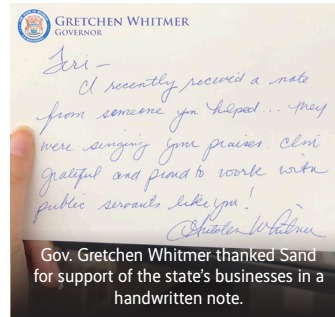 GRETCHEN WHITMER
GOVERNOR
Teri –
I recently received a note
from someone you helped... they
were singing your praises. I'm
grateful and proud to work with
public servants like you!
Gretchen Whitmer
Gov. Gretchen Whitmer thanked Sand
for support of the state's businesses in a
handwritten note.